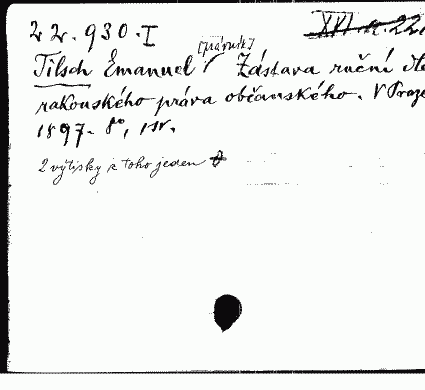 22.930.I
Tilsch Emanuel Zástava ruční dle
rakouského práva občanského. V Praze
1897. 8°, 1 sv.
2 výtisky z toho jeden